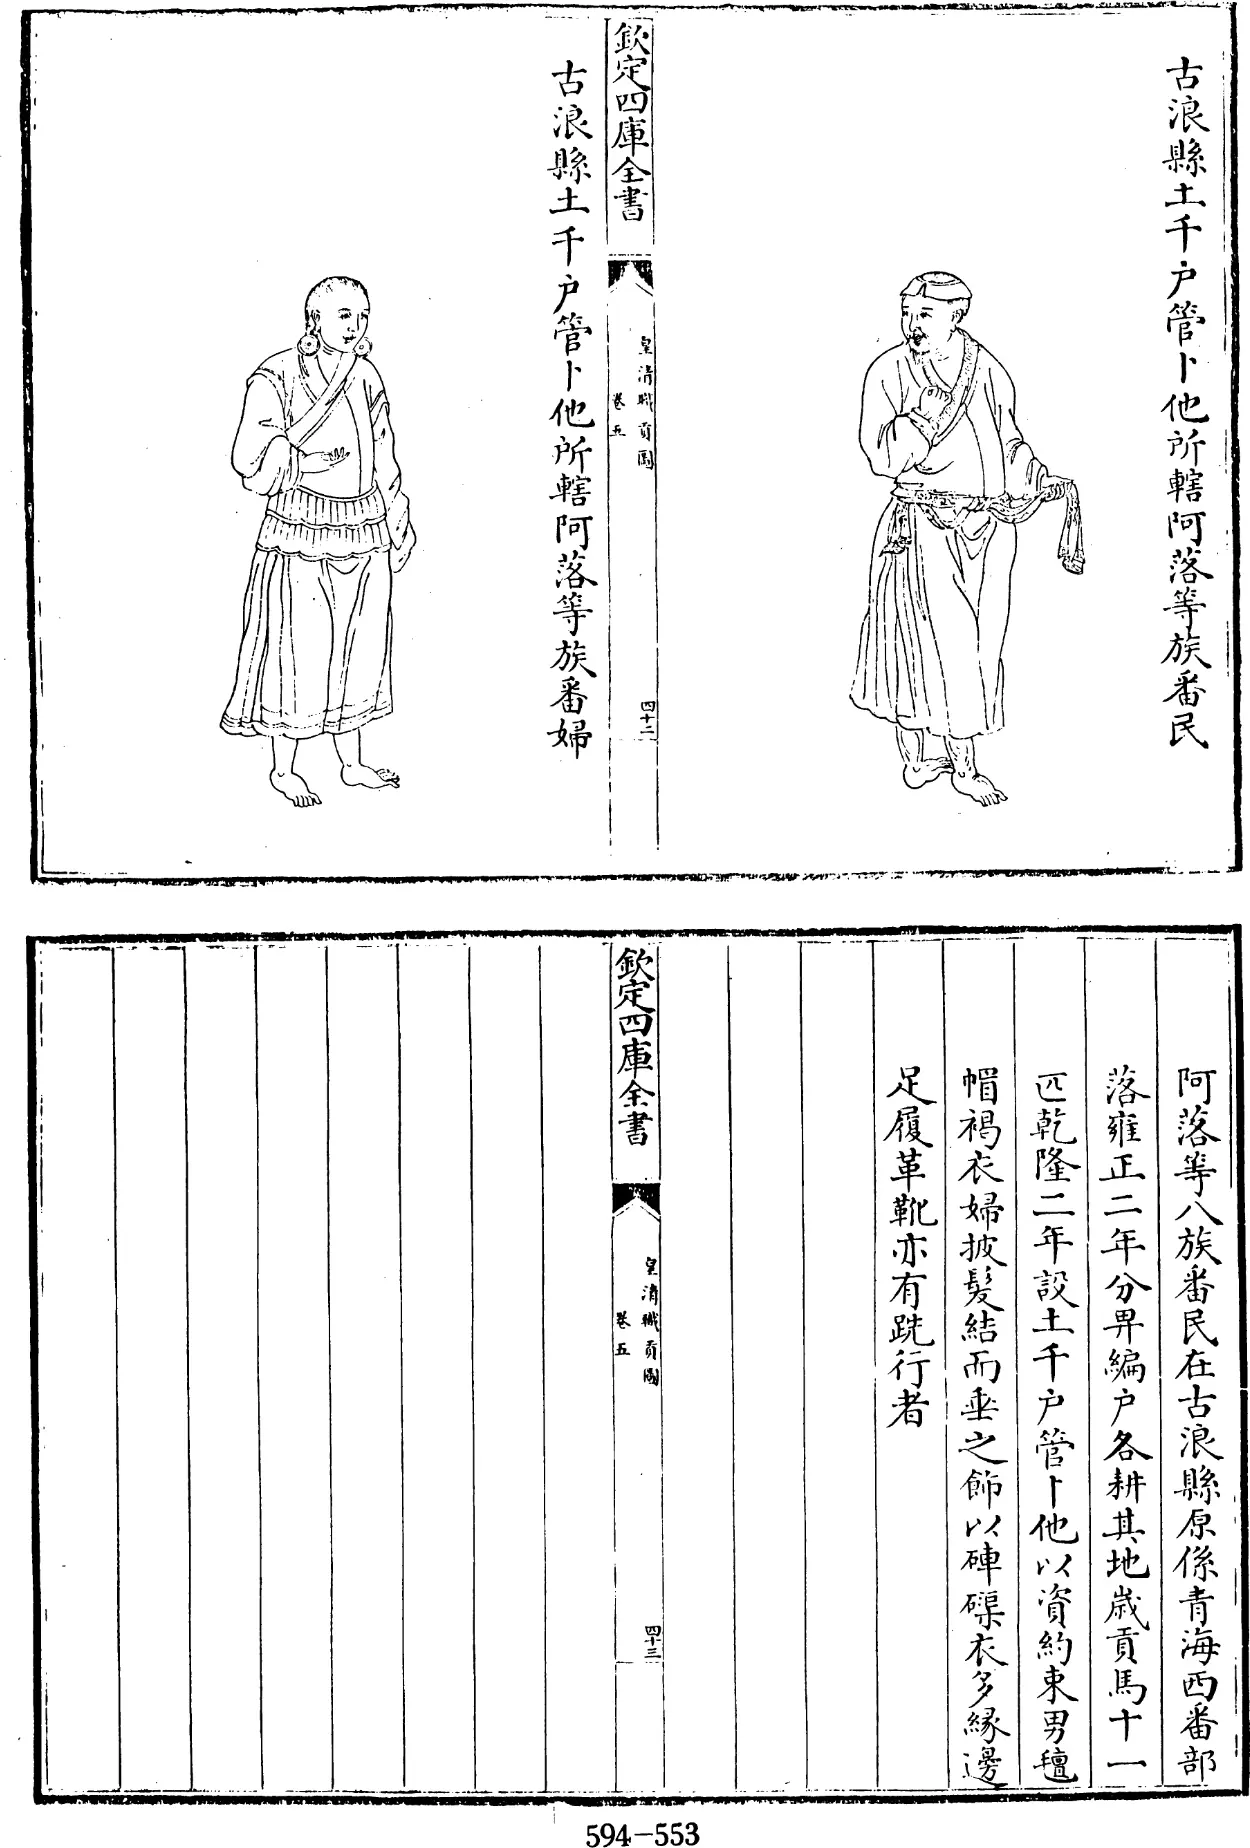 古浪縣土千户管卜他所轄阿落等族番民
欽定四庫全書
皇清職貢圖
卷五
四十二
古浪縣土千户管卜他所轄阿落等族番婦
阿落等八族番民在古浪縣原係青海西番部
落雍正二年分畀編户各耕其地歲貢馬十一
匹乾隆二年設土千户管卜他以資約束男氊
帽褐衣婦披髮結而垂之飾以硨磲衣多緣邊
足履革靴亦有跣行者
欽定四庫全書
皇清職貢圖
卷五
四十三
594-553